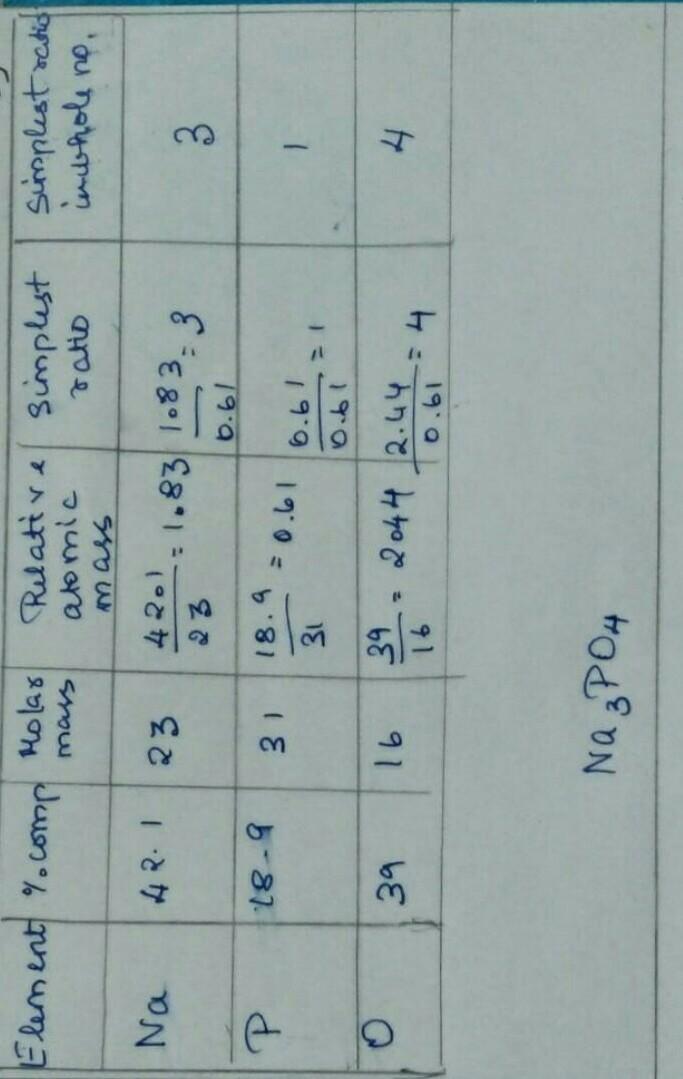 Element %comp Molar mass Relative atomic mass Simplest ratio Simplest ratio in whole no.
Na 42.1 23 42.1/23 = 1.83 1.83/0.61 = 3 3
P 18.9 31 18.9/31 = 0.61 0.61/0.61 = 1 1
O 39 16 39/16 = 2.44 2.44/0.61 = 4 4
Na3PO4